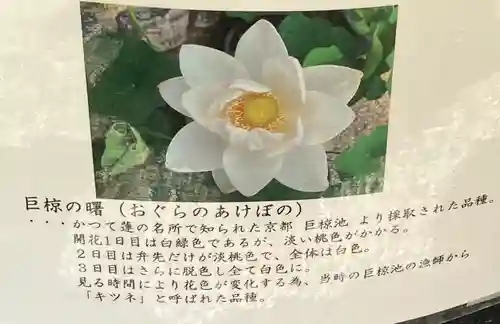 巨椋の曙(おぐらのあけぼの)
・・・かつて蓮の名所で知られた京都 巨椋池 より採取された品種。
開花1日目は白緑色であるが、淡い桃色がかかる。
2日目は弁先だけが淡桃色で、全体は白色。
3日目はさらに脱色し全て白色に。
見る時間により花色が変化する為、当時の巨椋池の漁師から
「キツネ」と呼ばれた品種。